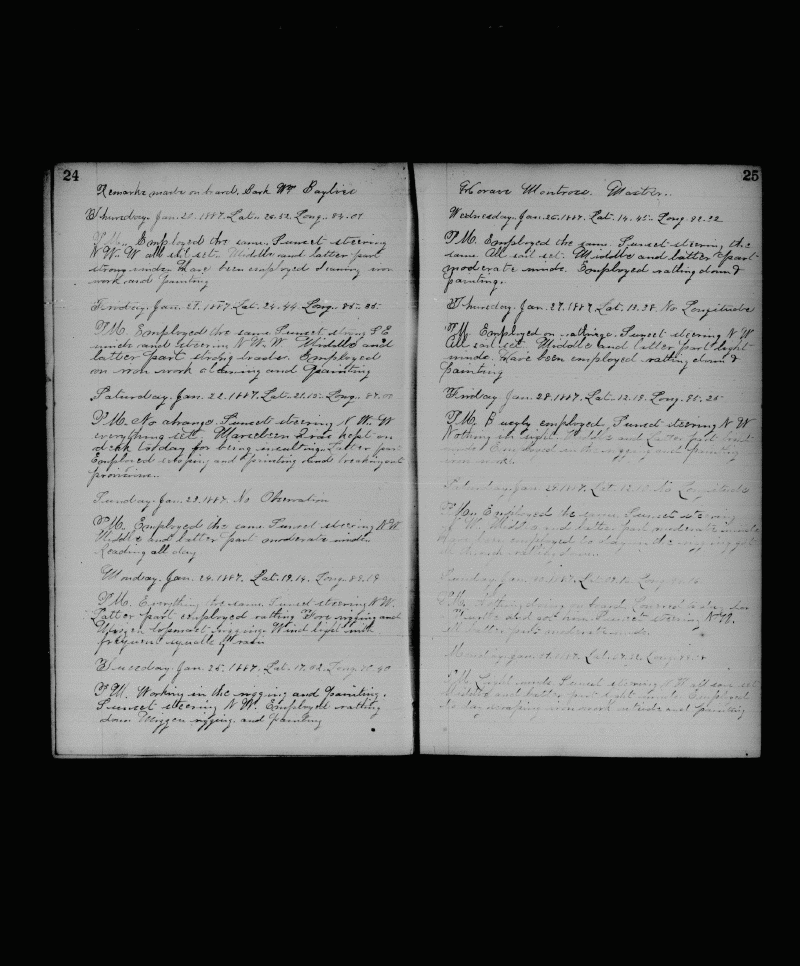 24
Remarks made on board Bark Wm Baylies
Thursday. Jan. 20. 1887. Lat. 26.52. Long. 84.01
P.M. Employed the same. Sunset steering
N.W. W all sail set. Middle and latter part
strong winds. Have been employed cleaning iron
work and painting
Friday. Jan. 21. 1887. Lat. 24.44. Long. 85-35.
P.M. Employed the same Sunset strong S E
winds and steering N.W. W Middle and
latter part strong trades. Employed
on iron work cleaning and Painting
Saturday. Jan. 22. 1887. Lat. Long. 87.
P.M. No change. Sunset steering N. W. W
everything set. kept on
deck today for being insulting. Latter part
Employed scraping and painting and breaking out
provisions.
Sunday. Jan. 23. 1887. No Observation
P.M. Employed the same Sunset steering N.W.
Middle and latter part moderate winds
Reading all day
Monday. Jan. 24. 1887. Lat. 19.14. Long. 89.19
P.M. Everything the same. Sunset steering N.W.
Latter part employed ratling Fore rigging and
topmast rigging. Wind light with
frequent squalls of rain
Tuesday. Jan. 25. 1887. Lat. 17.02. Long. 90.40
P.M. Working in the rigging and Painting.
Sunset steering N.W. Employed ratling
down Mizzen rigging. and painting
25
Horace Montross. Master..
Wednesday. Jan. 26. 1887. Lat. 14.45. Long. 92.22
P.M. Employed the same. Sunset steering the
same. All sail set. Middle and latter part
moderate winds. Employed ratling down &
painting.
Thursday. Jan. 27. 1887. Lat. 13.28. No Longitude
P.M. Employed on Sunset steering N W
All sail set. Middle and latter part light
winds. Have been employed ratling down &
Painting
Friday. Jan. 28. 1887. Lat. 12.19. Long. 95.25
P.M. Busily employed. Sunset steering N W
Nothing in sight. Middle and Latter part light
winds. Employed on the rigging and painting
iron work.
Saturday. Jan. 29. 1887. Lat. No Longitude
P.M. Employed the same. Sunset steering
N W. Middle and latter part moderate winds
Have been employed today in the rigging
ratling down.
Sunday. Jan. 30. 1887. Lat. Long.
P.M. Nothing doing on board.
Sunset steering N.W.
latter part moderate winds.
Monday. Jan. 31. 1887. Lat. Long.
P.M. Light winds. Sunset steering N W all sail set
Middle and latter part light winds. Employed
to day scraping iron work outside and painting